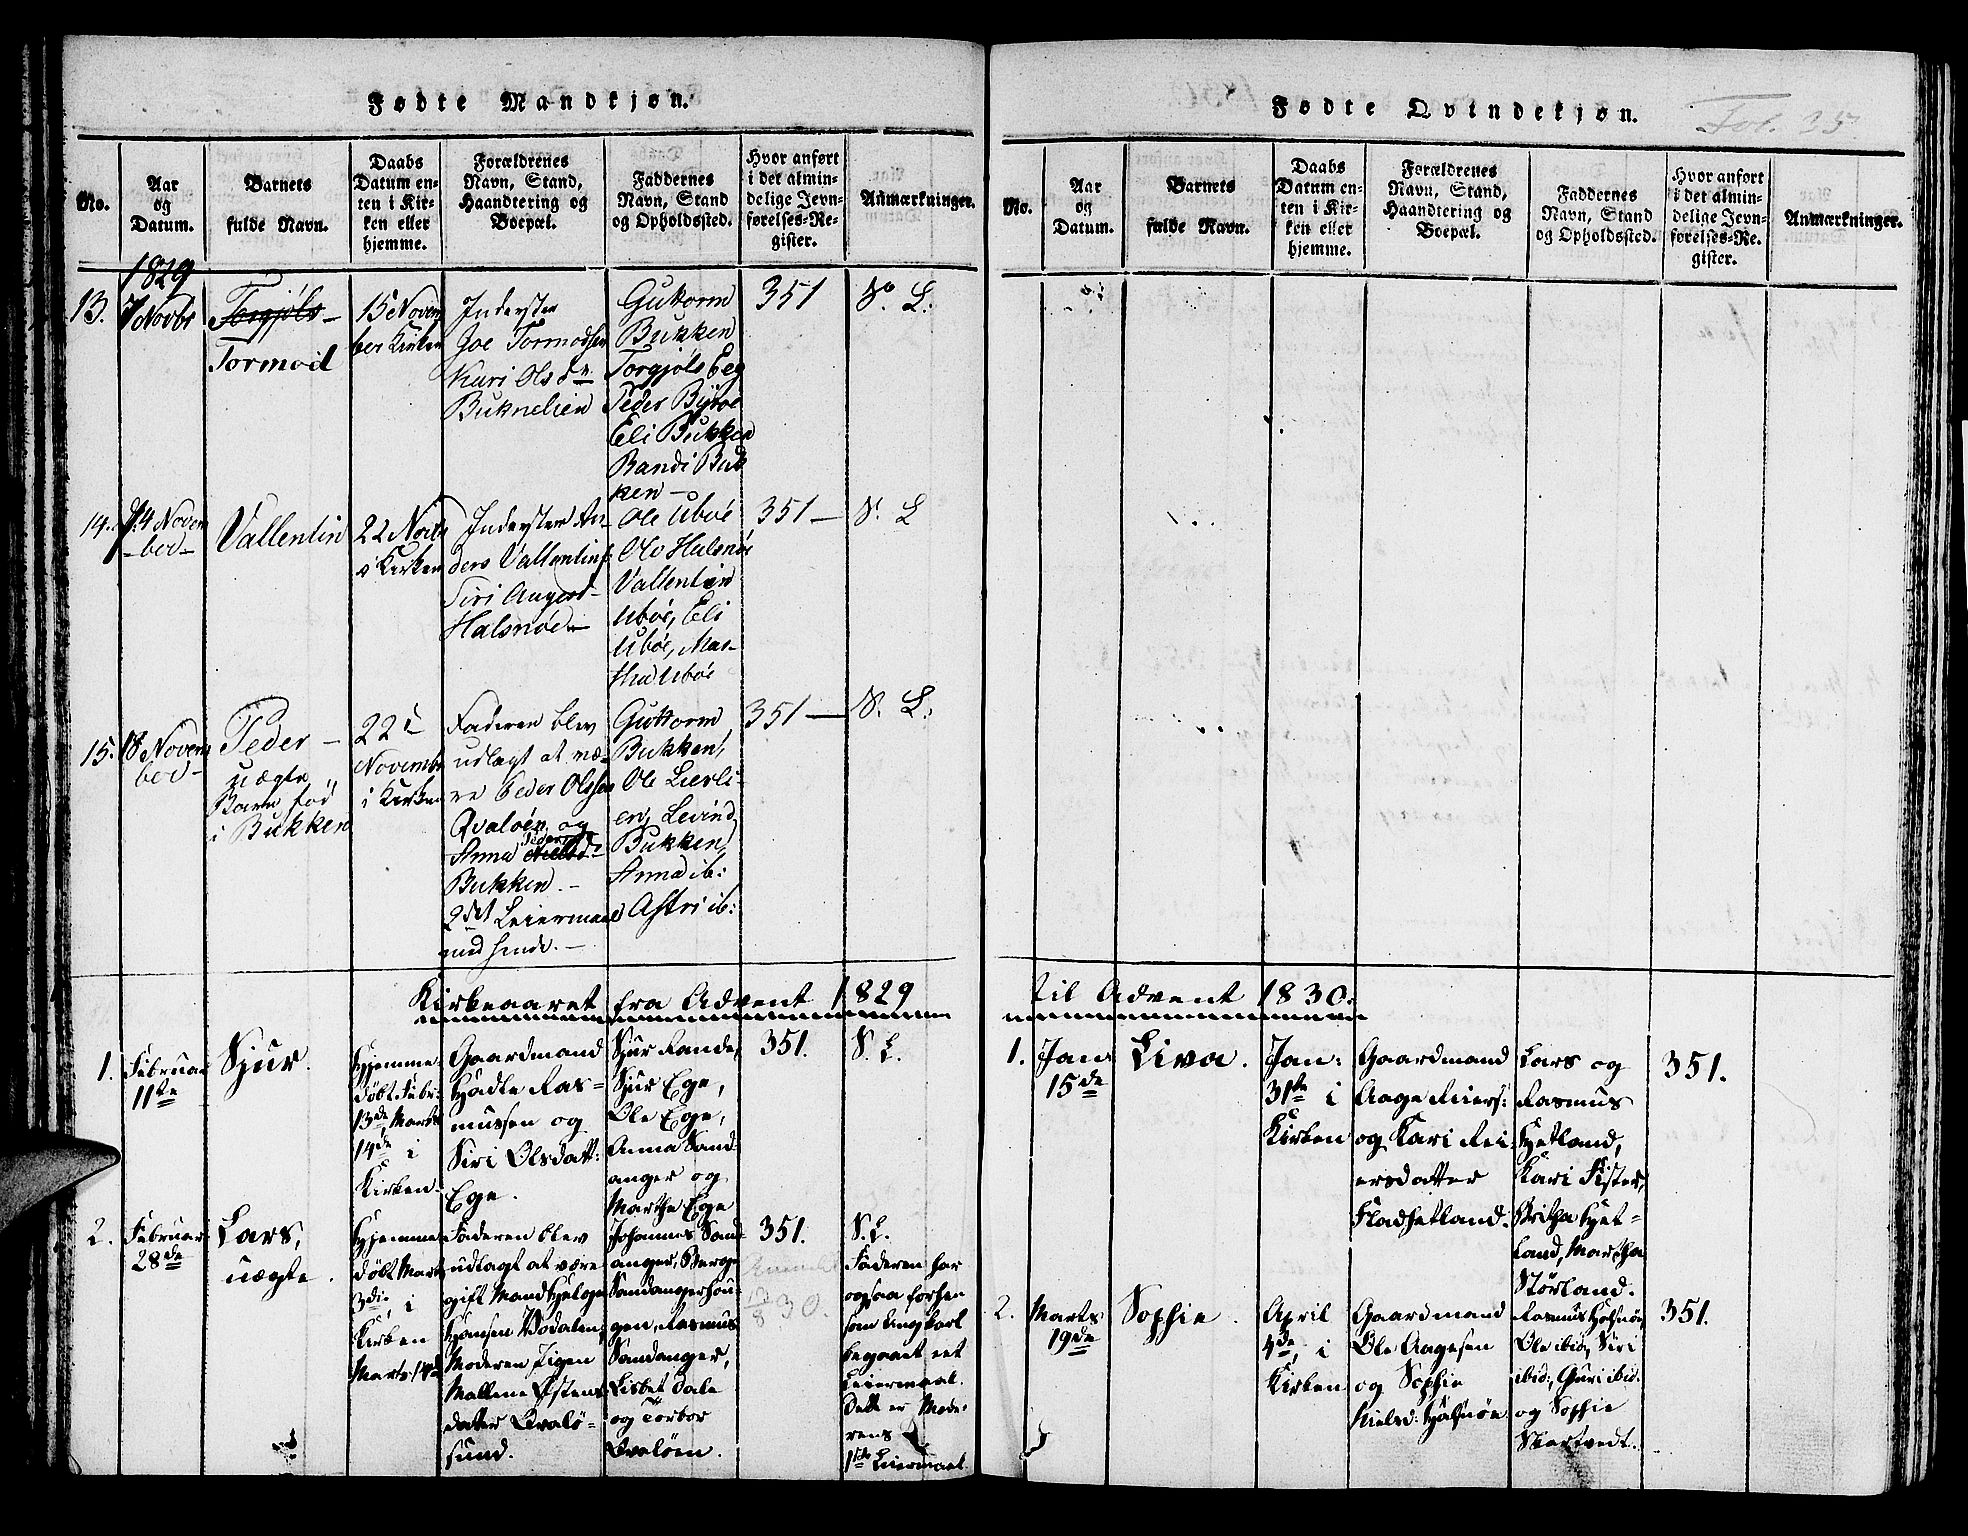 Fødte Mandkjøn.
No.
Aar
og
Datum.
Barnets
fulde Navn.
Daabs
Datum en-
ten i Kir-
ken eller
hjemme.
Forældrenes
Navn, Stand,
Haandtering og
Boepæl.
Faddernes
Navn, Stand
og Opholdssted.
Hvor anført
i det almin-
delige Jevn-
førelses-Re-
gister.
Anmærkninger.
1829
13.
7 Novbr
Torgjøls -
Tormod
15 Novem
ber Kirken
Inderster
Joe Tormodsen
Kari Olsd
Bukkenelien
Guttorm
Bukken
Torgjøls Eeg
Peder Byrøe
Eli Bukken
Randi Buk
ken -
351
S. L.
14.
14 Novem
-ber-
Vallentin
22 Novbr
i Kirken
Inderster An-
ders Vallentins
Siri Aagesd-
Halsnøe -
Ole Ubøe
Ole Halsnøe
Vallentin
Ubøe, Eli
Ubøe, Mar-
tha Ubøe
351 -
S. L
15.
18 Novem
ber-
Peder -
uægte
Barn fød
i Bukken
22
Novembr
i Kirken
Faderen blev
udlagt at væ-
re Peder Olsen
Qvaløen og
Peders
Anna Nielsd
Bukken. -
2det Leiermaal
med hende. -
Guttorm
Bukken,
Ole Lierli-
en, Levind
Bukken,
Anna ib:
Astri ib:
351 -
S. L.
Kirkeaaret fra Advent 1829
1.
Februar
11te
Sjur.
Hjemme-
døbt Febr:
13de, Marts
14de i
Kirken.
Gaardmand
Hødle Ras-
mussen og
Siri Olsdatt:
Ege.
Sjur Rande,
Sjur Ege,
Ole Ege,
Anna Sand-
anger og
Marthe Ege
351.
S. L.
2.
Februar
28de
Lars,
uægte.
Hjemme
døbt Marts
3die, i
Kirken
Marts 14de
Faderen blev
udlagt at være
gift Mand Helge
Hansen Vodalen,
Moderen Pigen
Mallene Østens
datter Qvalø-
sund.
Johannes Sand-
anger, Børge
Sandangerhou-
gen, Rasmus
Sandanger,
Lisbet Dale
og Torbor
Qvaløen.
351.
30.
S. L.
Faderen har
ogsaa forhen
som Ungkarl
begaaet eet
Leiermaal.
Dette er Mode-
rens
1ste Leiermaal.
Fødte Qvindekjøn.
Fol. 35
No.
Aar
og
Datum.
Barnets
fulde Navn.
Daabs
Datum en-
ten i Kir-
ken eller
hjemme.
Forældrenes
Navn, Stand,
Haandtering og
Boepæl.
Faddernes
Navn, Stand
og Opholdssted.
Hvor anført
i det almin-
delige Jevn-
førelses-Re-
gister.
Anmærkninger.
til Advent 1830.
1.
Jan:
15de
Liva.
Jan:
31te i
Kirken
Gaardmand
Aage Reiers:
og Kari Rei
ersdatter
Fladhetland.
Lars og
Rasmus
Hetland,
Kari Fister,
Britha Het-
land, Martha
Størland.
351.
2.
Marts
19de
Sophie.
April
4de, i
Kirken
Gaardmand
Ole Aagesen
og Sophie
Nielsd: Halsnøe
Rasmus Halsnøe,
Ole ibid, Siri
ibid:, Guri ibid.
og Sophie
Skartvedt.
351.